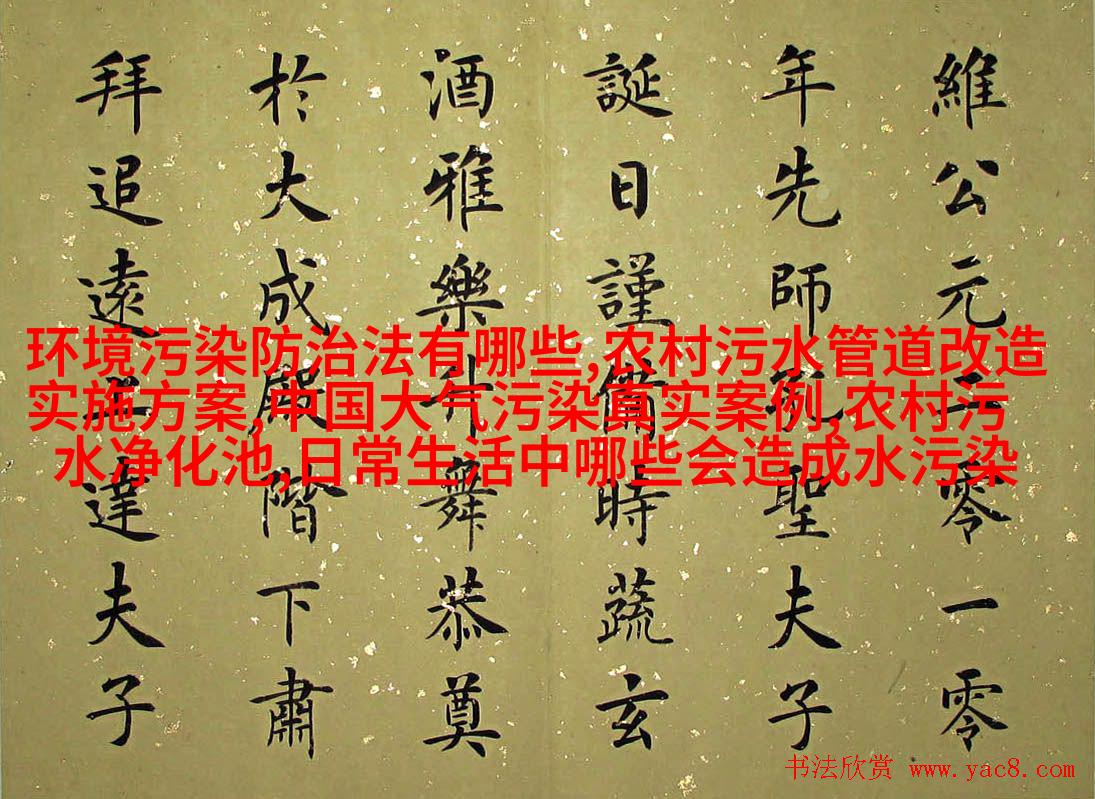 維公元二零一零
年先師孔聖夫子
誕日謹備時蔬玄
酒雅樂升舞恭奠
於大成殿階下肅
拜追遠達夫子
环境污染防治法有哪些,农村污水管道改造
实施方案,中国大气污染真实案例,农村污
水净化池,日常生活中哪些会造成水污染
书法欣赏 www.yac8.com